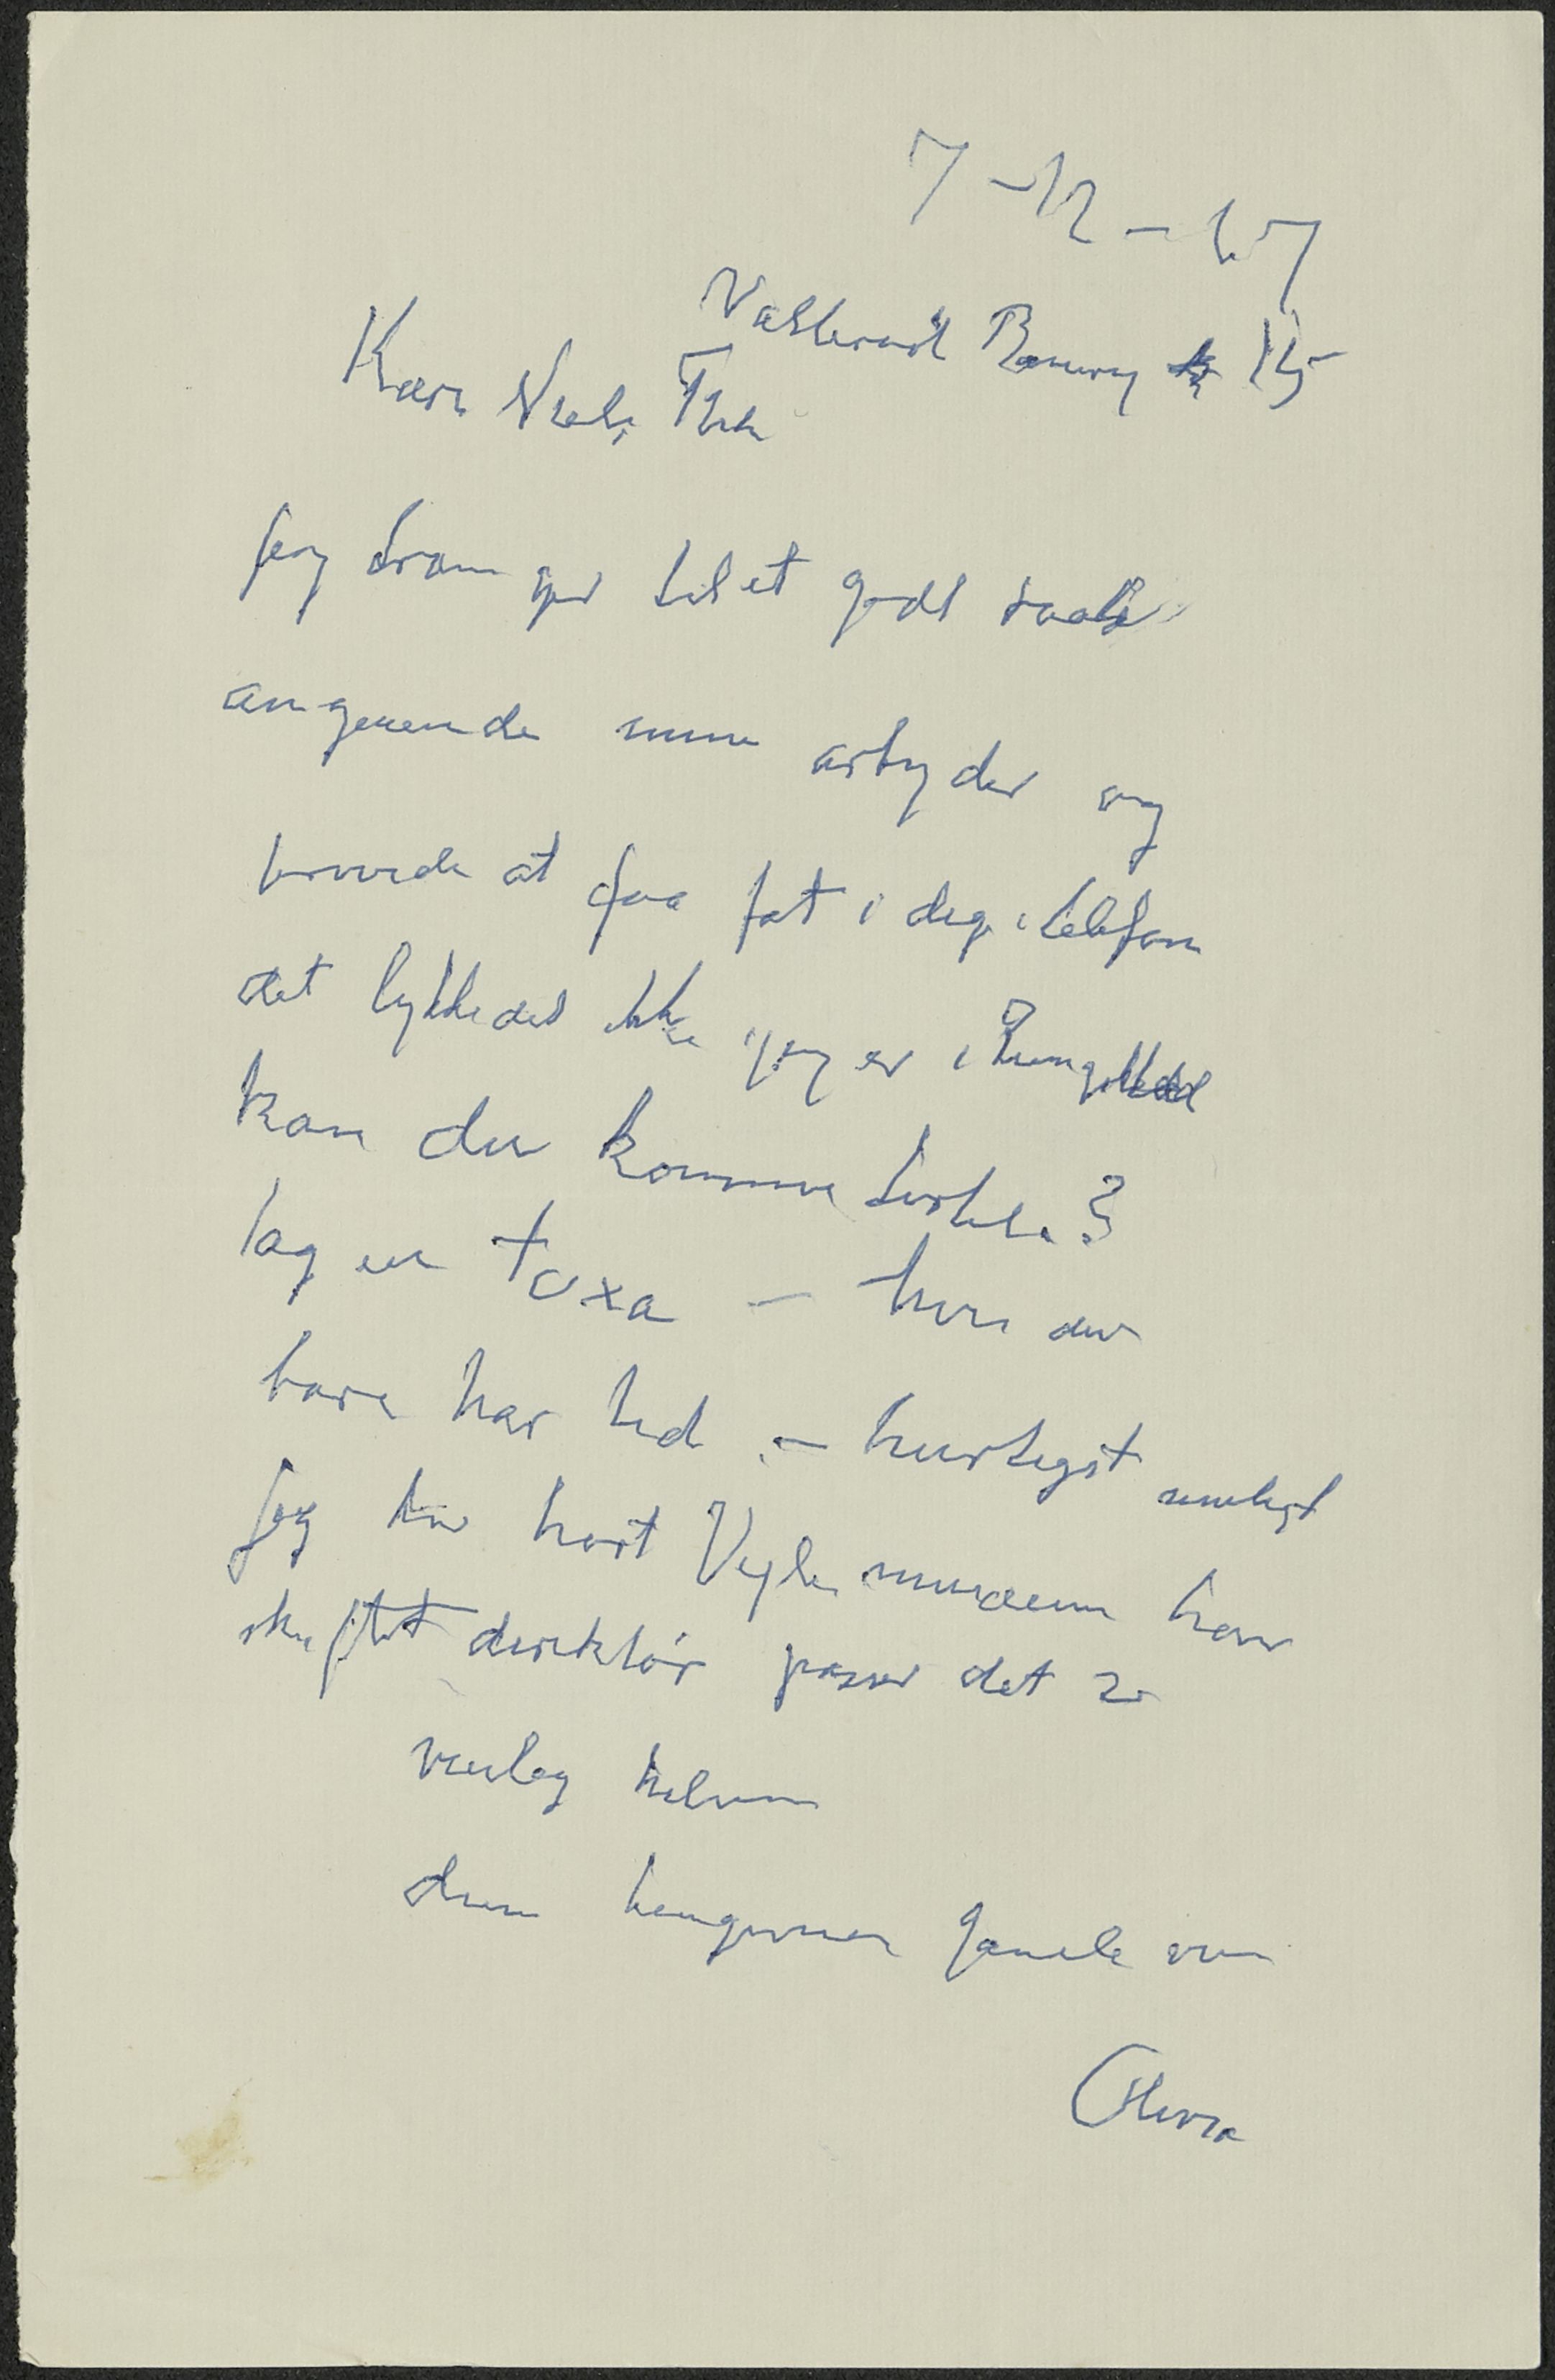 7-12-67
Vallerød Banevej 15
Kære Niels Th
jeg trænger til et godt raad
angaaende mine arbyder og
prøvede at faa fat i dig i telefon
det lykkedes ikke jeg er i Rungsted
kan du komme herhen?
tag en taxa – hvis du
bare har tid – hurtigst muligt
Jeg har hørt Vejle museum har
skiftet direktør passer det?
venlig hilsen
din hengivne gamle ven
Olivia